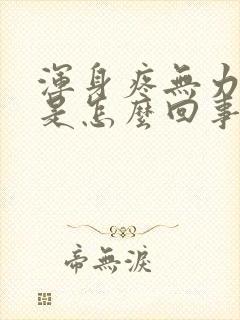 渾身疼無力
是怎麼回事
帝無淚